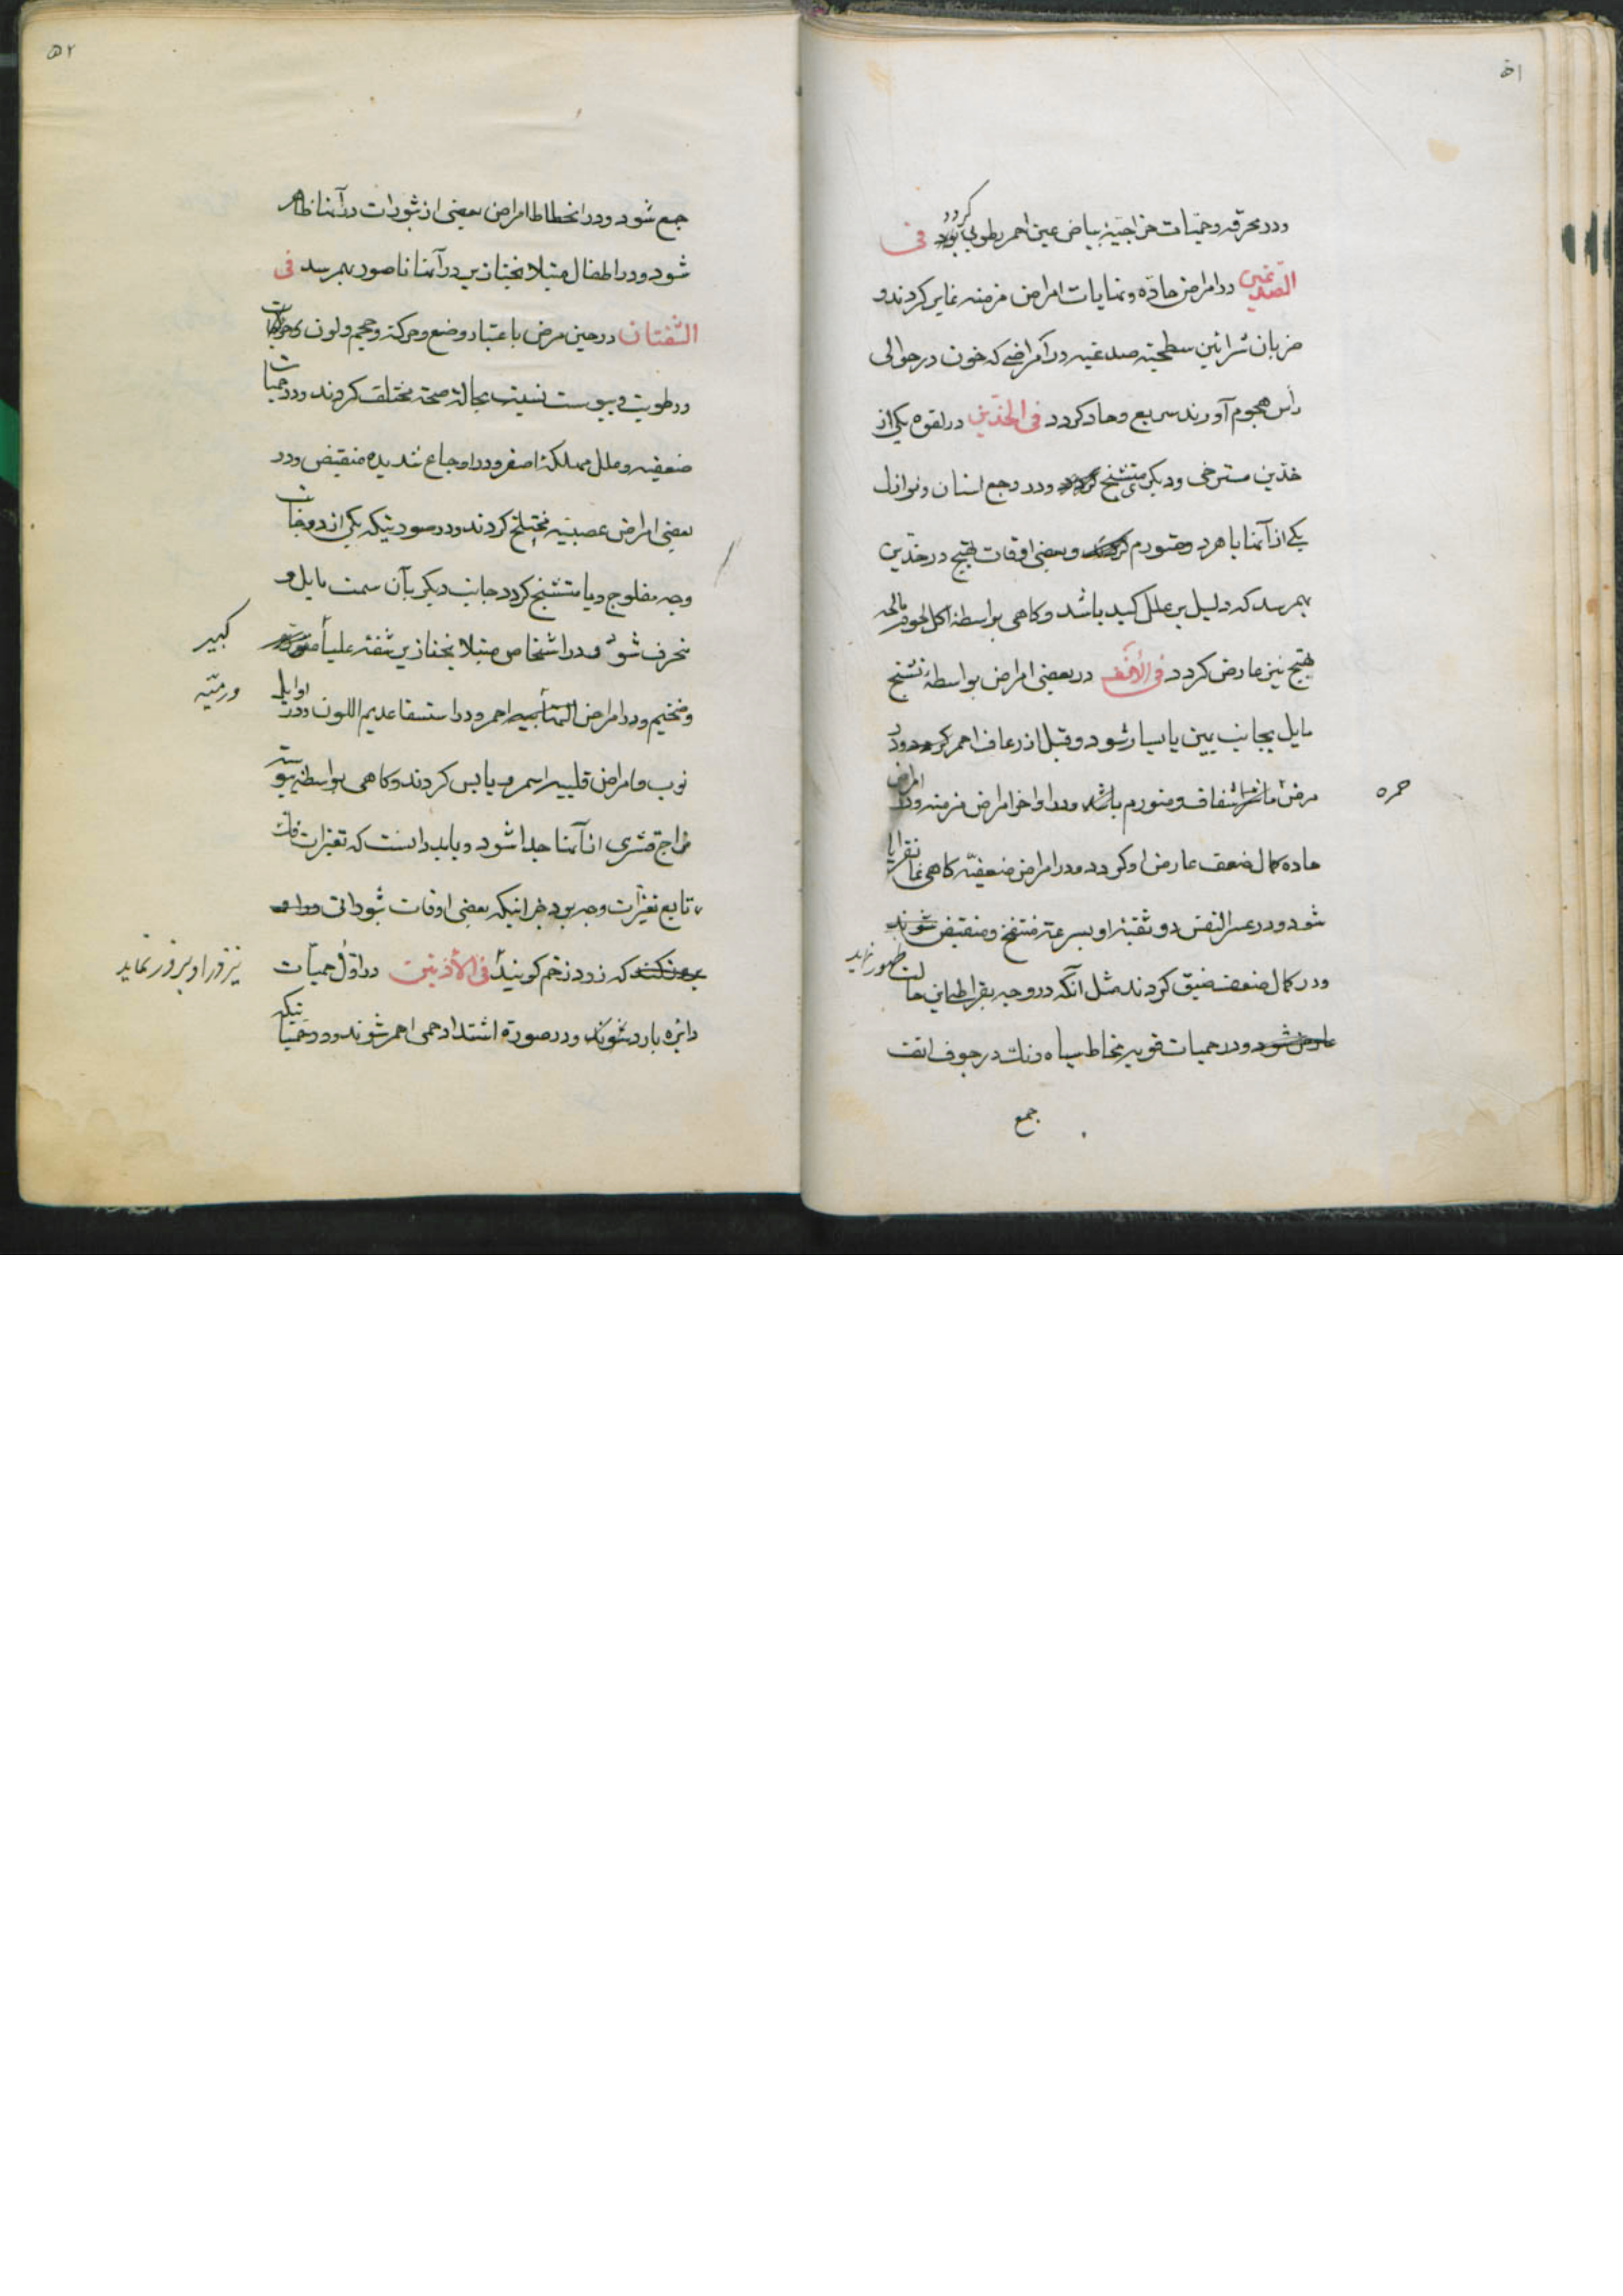 ۵۱
ودر محرقه وحمیات خراجیه بیاض عین احمر رطوبی گردد فی
الصدغین در امراض حاده ونهایات امراض مزمنه غایر گردند و
ضربان شرائین سطحیه صدغیه در امراضی که خون در حوالی
رأس هجوم آورند سریع وحاد گردد فی الخدین در لقوه یکی از
خدین مسترخی ودیگر متشنج گردد ودر وجع اسنان ونوازل
یکی از آنها یا هر دو متورم و بعضی اوقات تهیج در خدین
بهم رسد که دلیل بر علل کبد باشد وگاهی بواسطه اکل لحوم مالحه
تهیج نیز عارض گردد فی الأنف در بعضی امراض بواسطه تشنج
مایل بجانب یمین یا یسار شود وقبل از رعاف احمر گردد ودر
مرض شفاف ومتورم باشد ودر اواخر امراض مزمنه ودر امراض
حمره
حاده کمال ضعف عارض او گردد ودر امراض ضعفیه گاهی
شود ودر عسر النفس دو ثقبه او بسرعة منتفخ ومنقبض شوند
ودر کمال ضعف ضیق گردند مثل آنکه در وجه بقراطی این حالت
ظهور نماید
عارض شود ودر حمیات قویه مخاط سیاه رنگ در جوف انف
جمع
۵۲
جمع شود ودر انحطاط امراض بعضی از بثورات در آنها ظاهر
شود ودر اطفال مبتلا بخنازیر در آنها ناصور بهم رسد فی
الشفتان در حین مرض باعتبار وضع وحرکة وحجم ولون وحرارت
ورطوبت ویبوست نسبت بحالة صحة مختلف گردند ودر حمیات
ضعفیه وعلل مهلکه اصفر ودر اوجاع شدیده منقبض ودر
بعضی امراض عصبیه مختلج گردند ودر صورتیکه یکی از دو جانب
وجه مفلوج ویا متشنج گردد جانب دیگر بآن سمت مایل و
منحرف شود ودر اشخاص مبتلا بخنازیر شفه علیا
کبیر
وضخیم ودر امراض احمر ودر استسقا عدیم اللون ودر اوایل
ورمیه
نوب وامراض قلبیه اسمر ویابس گردند وگاهی بواسطه یبوست
مزاج قشری از آنها جدا شود وباید دانست که تغیرات
تابع تغیرات وجه بود جز اینکه بعضی اوقات بثوراتی در او
بروز کنند که زود زخم گویند فی الأذنین در اول حمیات
نیز در او بروز نماید
دایره بارد شوند ودر صورة اشتداد حمی احمر شوند ودر حمیاتیکه